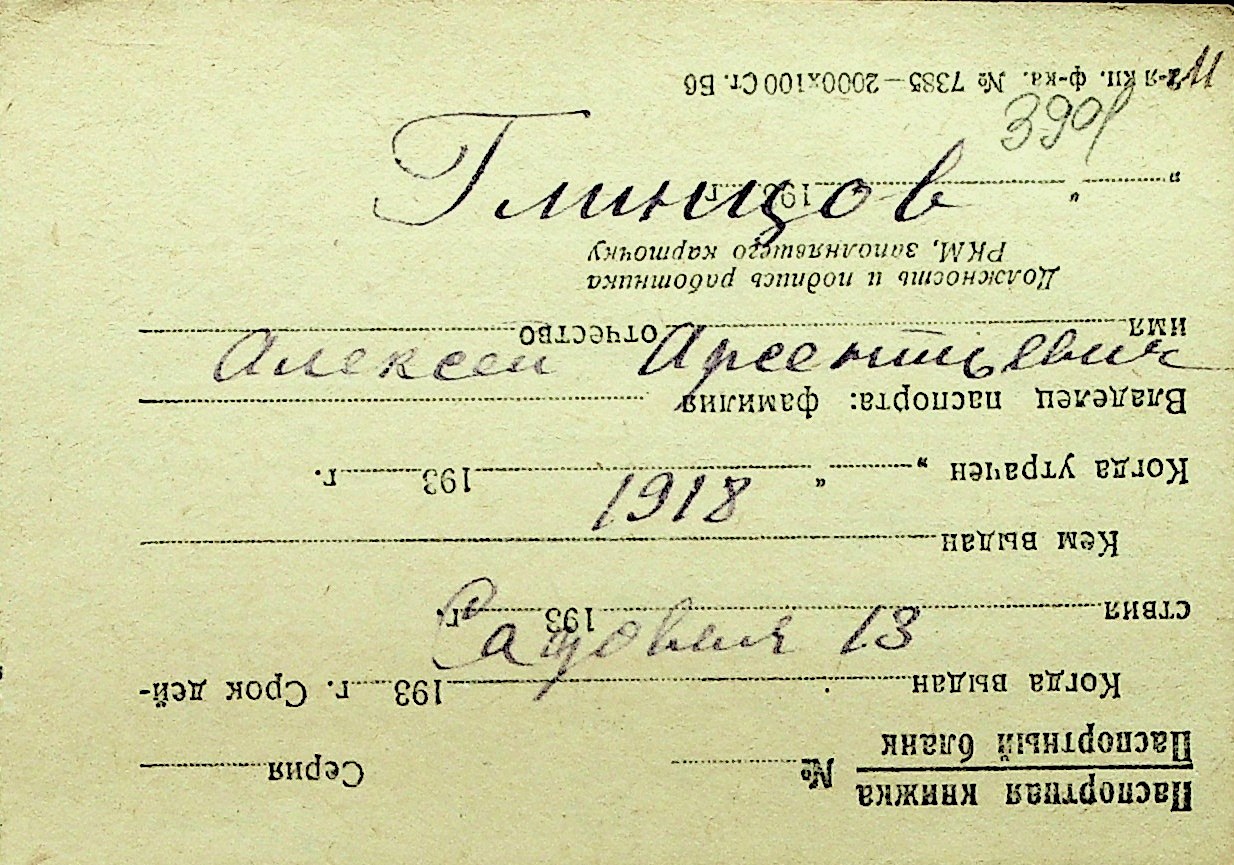 Глинцов
Алексей Арсентьевич
1918
Садовая 13
399
11
Паспортная книжка
Паспортный бланк
№ Серия
Когда выдан 193 г. Срок дей-
ствия 193 г.
Кем выдан
Когда утрачен „ “ 193 г.
Владелец паспорта: фамилия
имя отчество
Должность и подпись работника
РКМ, заполнявшего карточку
„ “ 193 г.
2-я кн. ф-ка. № 7385—2000×100 Ст. Вб